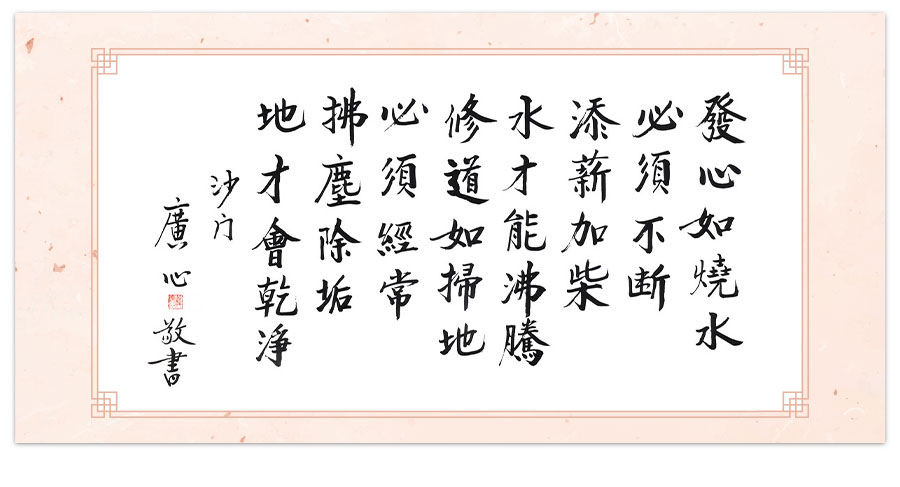 發心如燒水
必須不断
添薪加柴
水才能沸騰
修道如掃地
必須經常
拂塵除垢
地才會乾淨
沙门
廣心
敬書